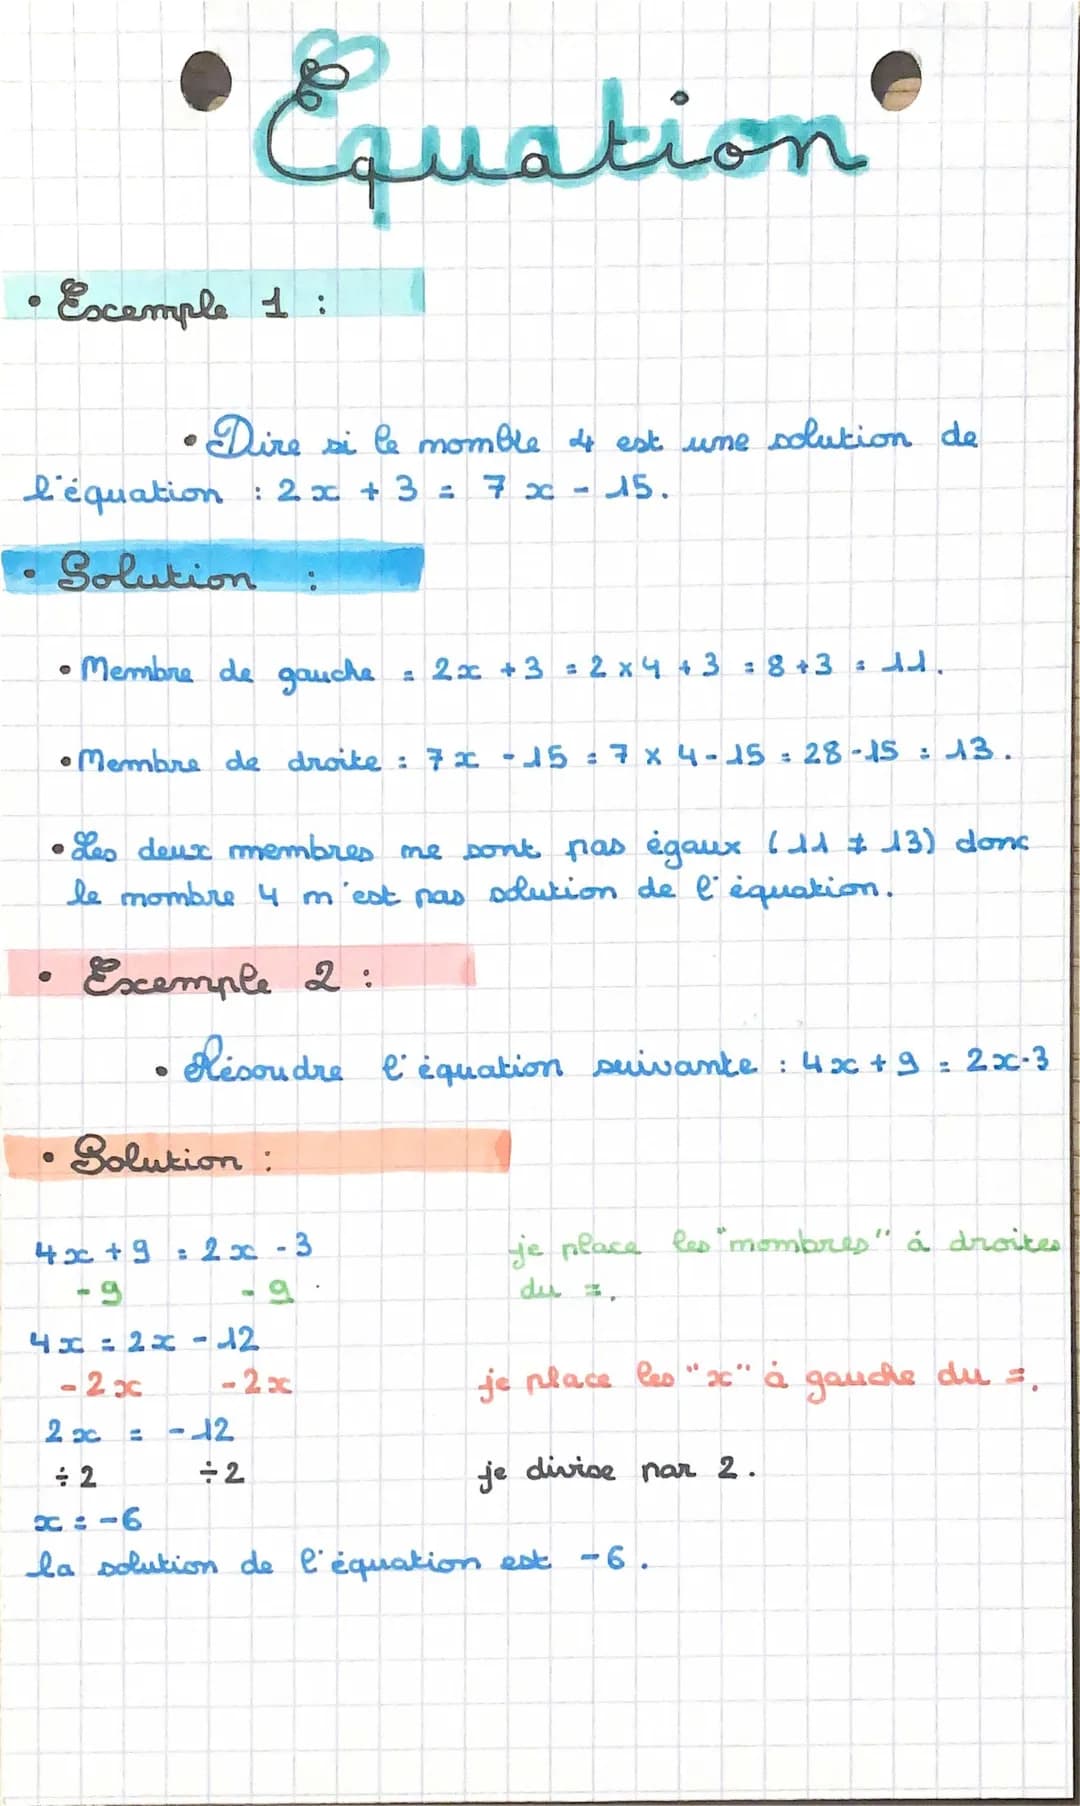 Équation
• Exemple 1 :
• Dire si le nombre 4 est une solution de
l'équation : 2x + 3 = 7x - 15.
• Solution :
• Membre de gauche = 2x + 3 = 2 x 4 + 3 = 8 + 3 = 11.
• Membre de droite : 7x - 15 = 7 x 4 - 15 = 28 - 15 = 13.
• Les deux membres ne sont pas égaux (11 ≠ 13) donc
le nombre 4 n'est pas solution de l'équation.
• Exemple 2 :
• Résoudre l'équation suivante : 4x + 9 = 2x - 3
• Solution :
4x + 9 = 2x - 3 je place les "nombres" à droites
-9 -9 . du =.
4x = 2x - 12
-2x -2x je place les "x" à gauche du =.
2x = -12
÷2 ÷2 je divise par 2.
x = -6
la solution de l'équation est -6.